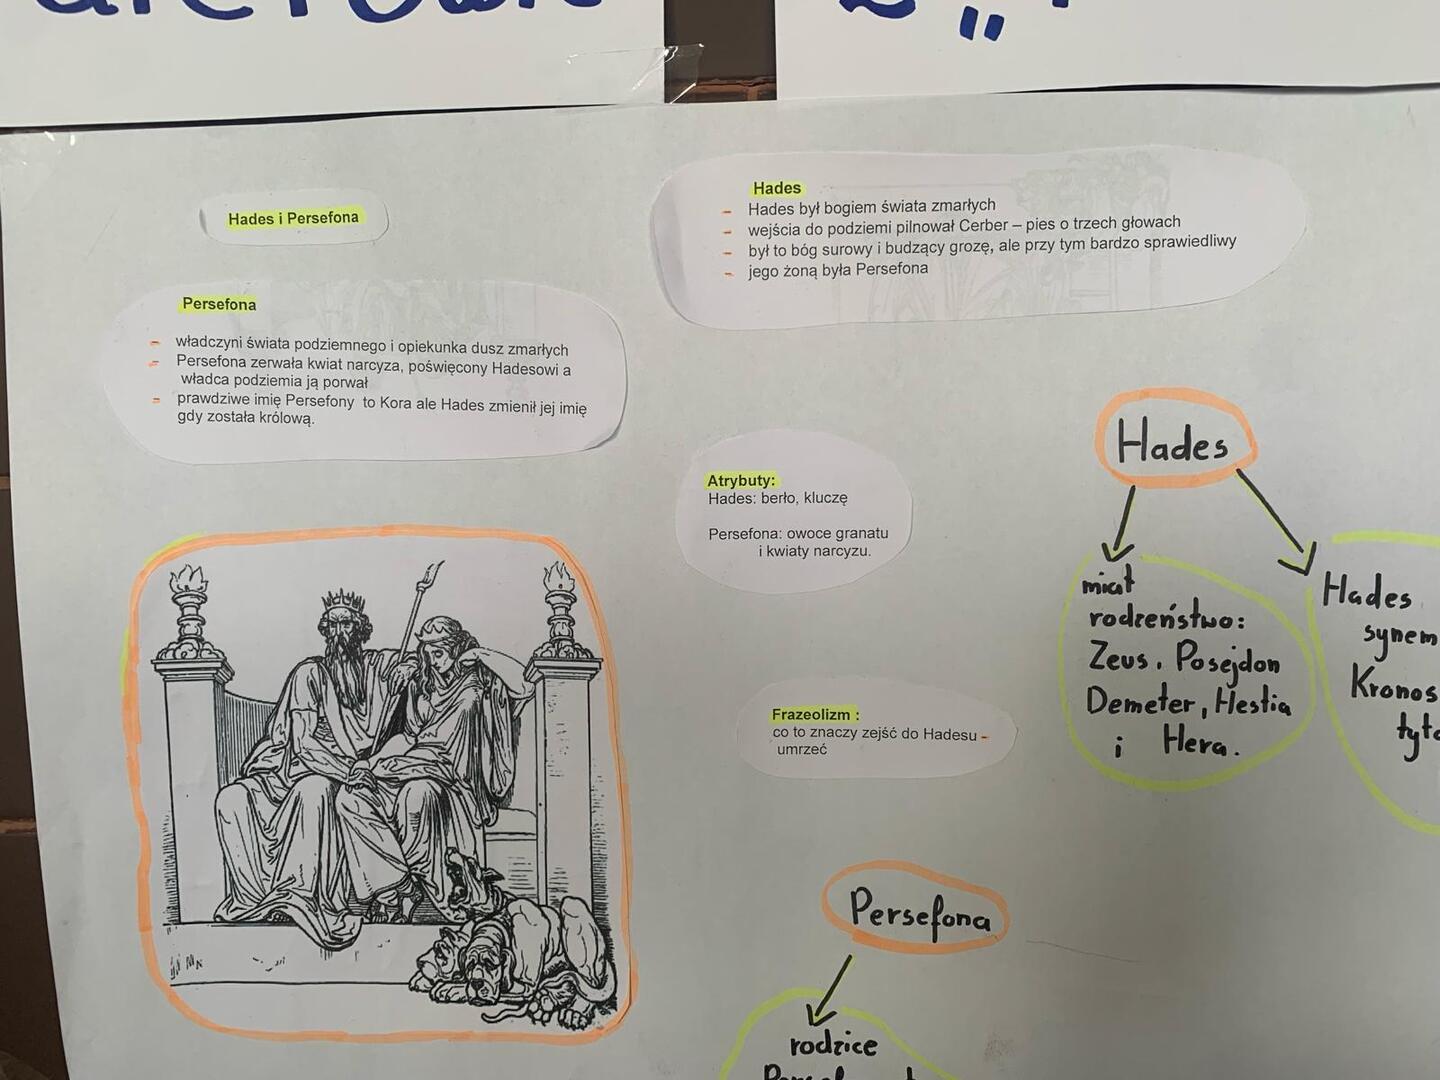 Hades i Persefona
Persefona
- władczyni świata podziemnego i opiekunka dusz zmarłych
- Persefona zerwała kwiat narcyza, poświęcony Hadesowi a
władca podziemia ją porwał
- prawdziwe imię Persefony to Kora ale Hades zmienił jej imię
gdy została królową.
Hades
- Hades był bogiem świata zmarłych
- wejścia do podziemi pilnował Cerber – pies o trzech głowach
- był to bóg surowy i budzący grozę, ale przy tym bardzo sprawiedliwy
- jego żoną była Persefona
Atrybuty:
Hades: berło, kluczę
Persefona: owoce granatu
i kwiaty narcyzu.
Frazeolizm :
co to znaczy zejść do Hadesu -
umrzeć
Hades
miał
rodzeństwo:
Zeus, Posejdon
Demeter, Hestia
i Hera.
Hades
synem
Kronos
Persefona
rodzice